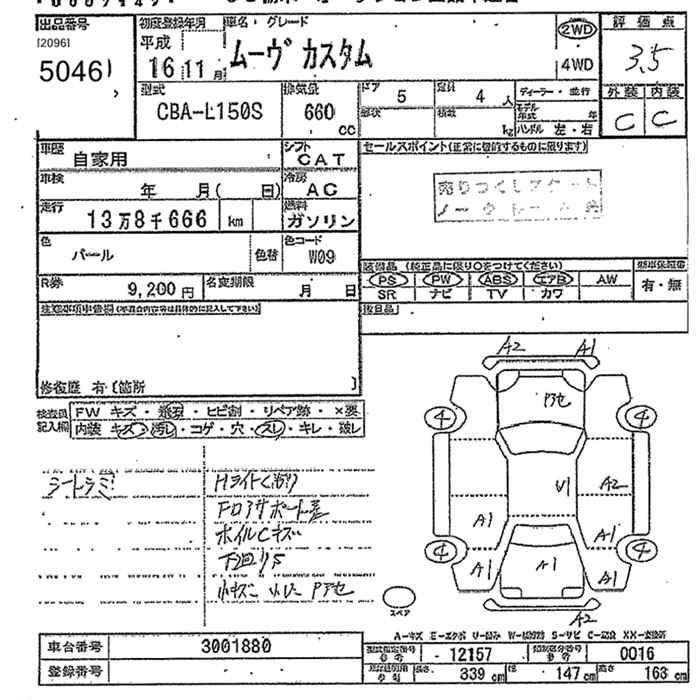 出品番号
(2096)
5046
初度登録年月
平成
16 11 月
車名・グレード
ムーヴ カスタム
2WD
4WD
評 価 点
3.5
外装 内装
C C
型式
CBA-L150S
排気量
660
CC
ドア
5
形状
定員
4 人
積載
kg
ディーラー・並行
モデル年式 年
ハンドル 左・右
車歴
自家用
シフト
CAT
車検
年 月( 日)
冷房
AC
走行
13万8千666 km
燃料
ガソリン
色
パール
色替
色コード
W09
R券
9,200 円
名変期限
月 日
セールスポイント(正常に登録するものに限ります)
装備品 (純正品に限り○をつけてください)
PS PW ABS エアB AW
SR ナビ TV カワ
有・無
後日品
修復歴 有〔箇所 〕
検査員
記入欄
FW キズ・飛石・ヒビ割・リペア跡・×要
内装 キズ・汚レ・コゲ・穴・スレ・キレ・破レ
シートシミ
Hライトくもり
Fロアサポート歪
ホイルCキズ
下回りS
小キズ 小ヘコ Pアセ
A2 A1
Pアセ
4 4
V1 A2
A1 A1
4 4
A1 A1 A1
A2
スペア
車台番号
3001880
登録番号
型式指定番号
12157
類別区分番号
0016
長さ 339 cm
幅 147 cm
高さ 163 cm